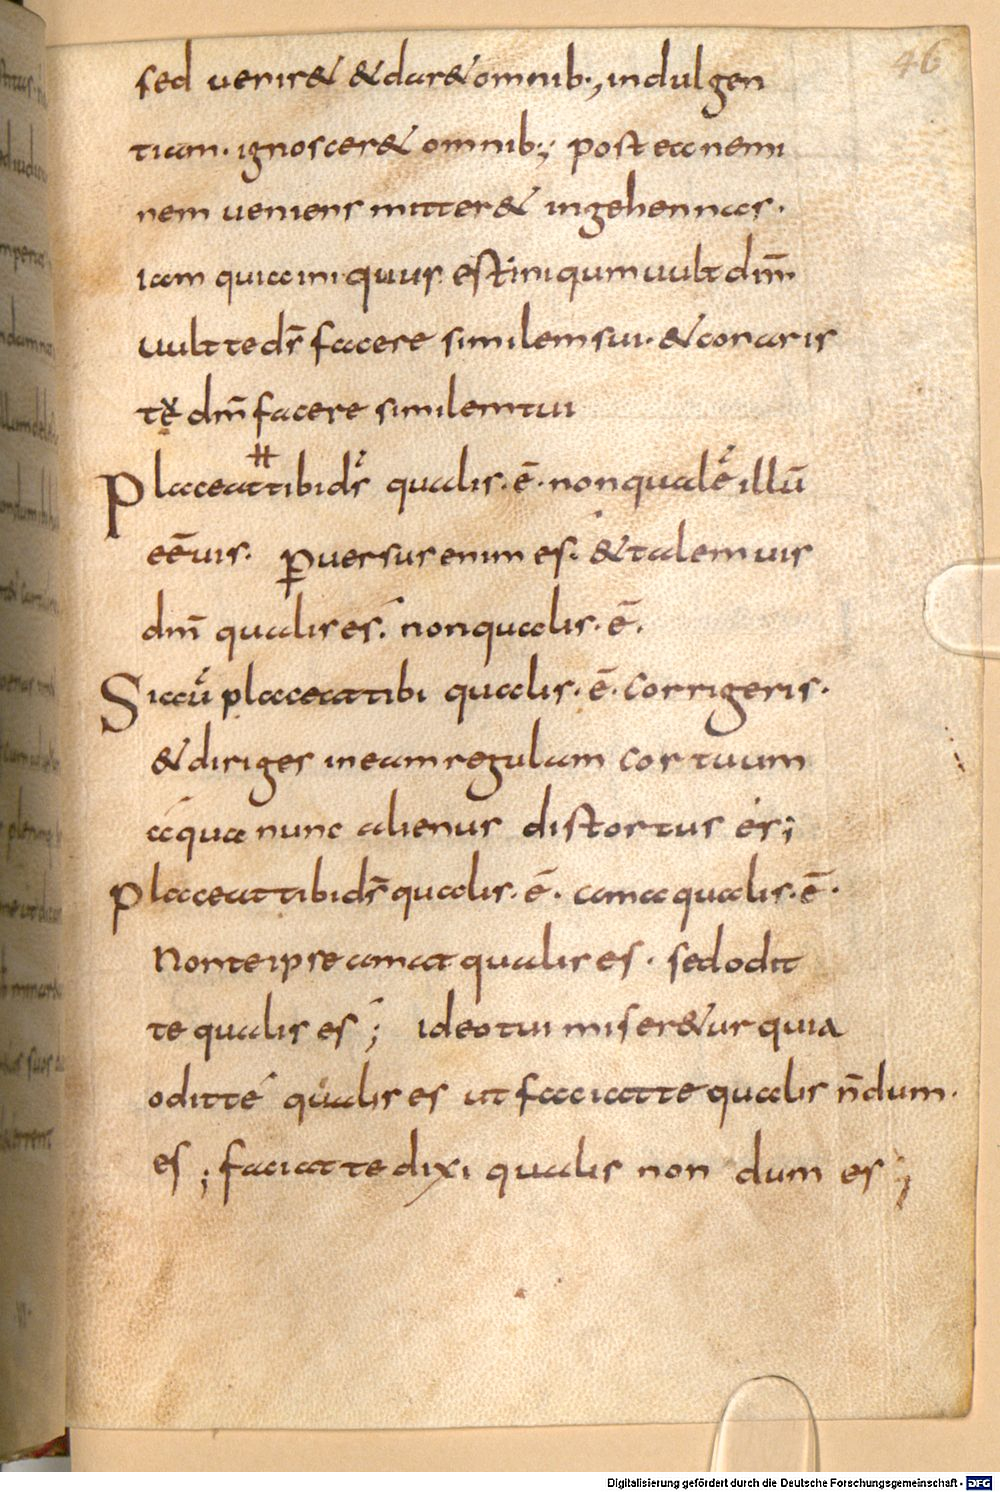 46
sed uenir& & dar& omnib:, indulgen
tiam. ignoscer& omnib:; post ea nemi
nem ueniens mitter& in gehennas.
iam quia iniquus est iniqum uult dm̄
uult te ds̄ facere similem sui. & conaris
te dm̄ facere similem tui
Placeat tibi ds̄ qualis. ē. non qualē illū
eē uis. ꝑuersus enim es. & talem uis
dm̄ qualis es. non qualis. ē.
Si aū placeat tibi qualis. ē. corrigeris.
& diriges in eam regulam cor tuum
a qua nunc alienus distortus es;
Placeat tibi ds̄ qualis. ē. ama qualis. ē.
Non te ipse amat qualis es. sed odit
te qualis es; ideo tui miser&ur quia
odit te qualis es ut faciat te qualis n̄dum.
es; faciat te dixi qualis non dum es;
Digitalisierung gefördert durch die Deutsche Forschungsgemeinschaft - DFG